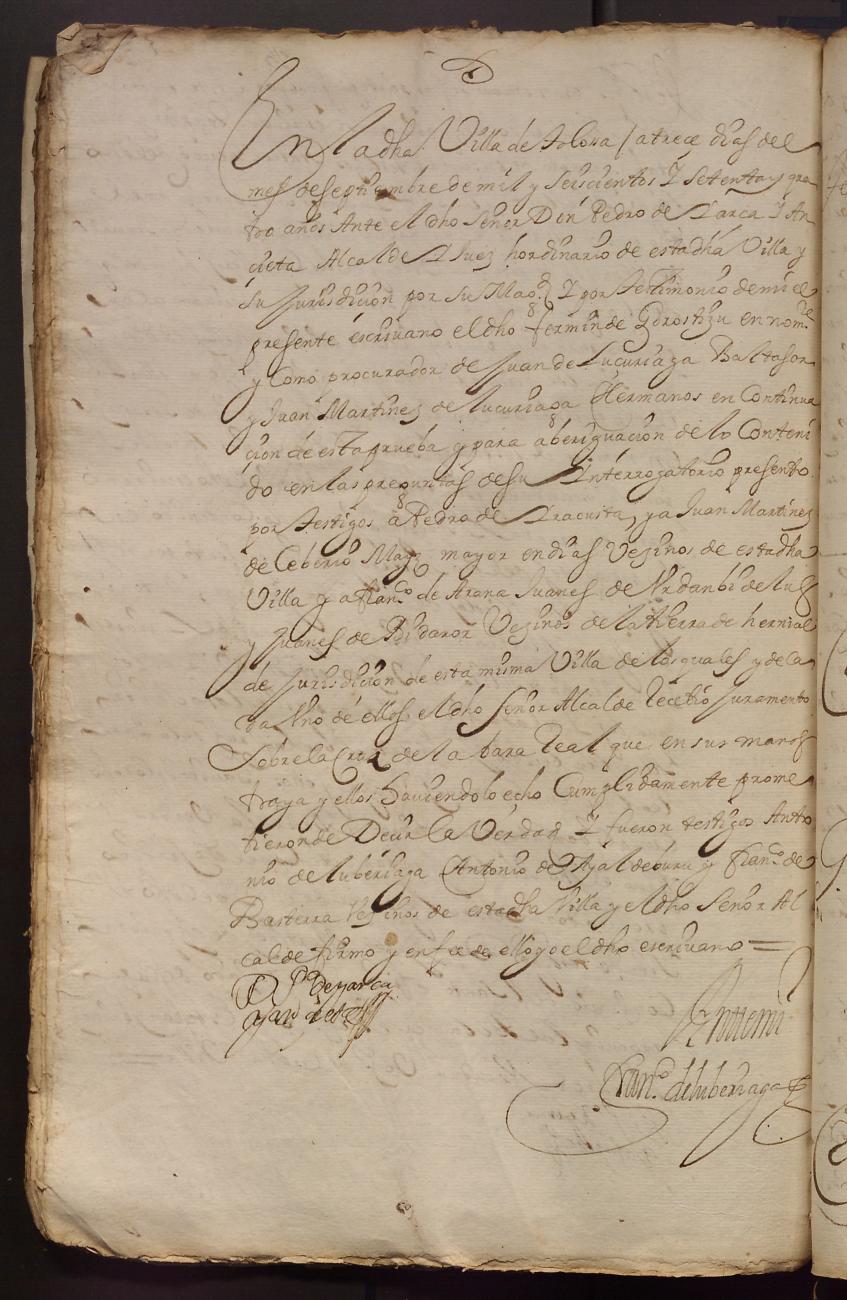 En la dha Villa de Tolosa / a trece dias del
mes de septiembre de mil y seiscientos y setenta y qua
tro años Ante el dho señor Don Pedro de Yarça Y An
cieta Alcalde Y Juez hordinario de esta dha Villa y
su Jurisdicion por su Magd. Y por Testimonio de mi el
presente escrivano el dho fermin de en nomre
y Como procurador de Juan de Lucuriaga Baltasar
y Juan Martinez de lucuriaga Hermanos en Continua
cion de esta prueba y para aberiguacion de lo Conteni
do en las preguntas de su Interrogatorio presento
por Testigos a Pedro de y a Juan Martinez
de Ceberio mayor en dias Vezinos de esta dha
Villa y a Franco de Arana Juanes de
y Juanes de Vezinos de la tierra de hernial
de Jurisdicion de esta misma Villa de los quales y de ca
da Uno de ellos el dho señor Alcalde Recebio Juramento
Sobre la Cruz de la bara Real que en sus manos
traya y ellos haviendolo echo Cumplidamente prome
tieron de Decir la Verdad Y fueron testigos Anto
nio de luberiaga Antonio de y Franco de
Basterra Vezinos de esta dha Villa y el dho Señor Al
calde firmo y en fee de ello yo el dho escrivano =
D Po de yarça
y ançieta
Ante mi
Franco de luberiaga